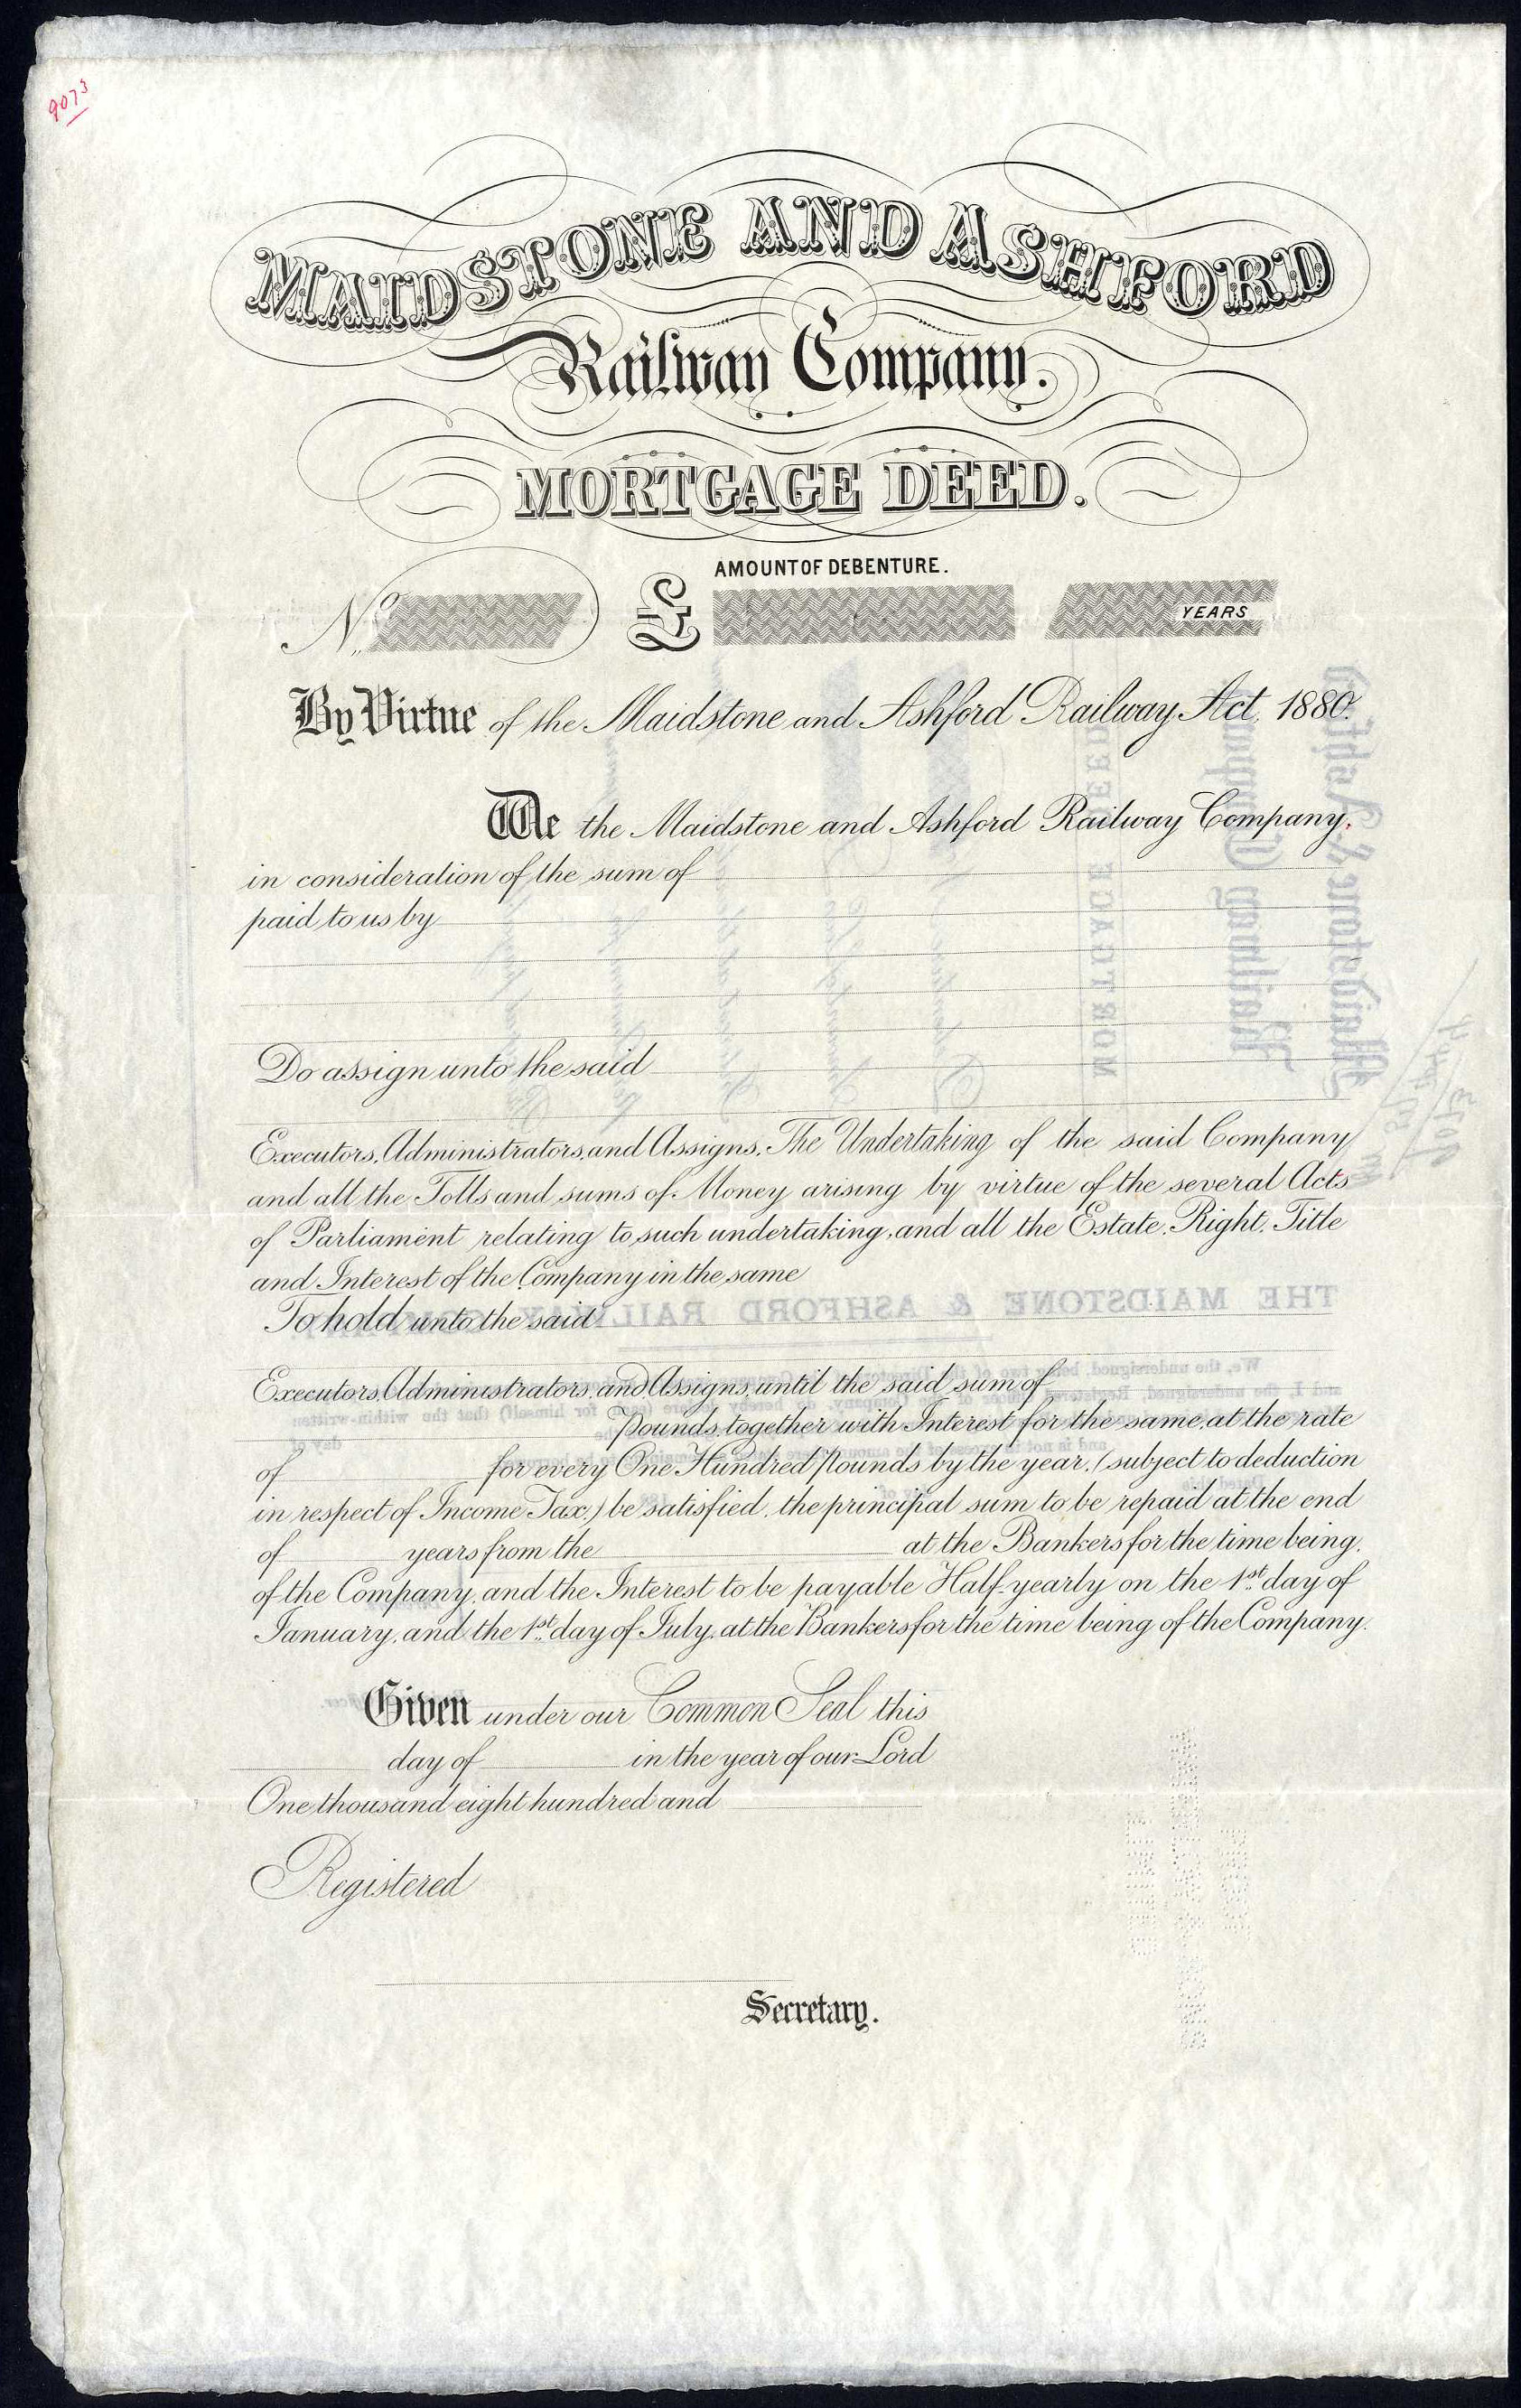 9073
MAIDSTONE AND ASHFORD
Railway Company.
MORTGAGE DEED.
AMOUNT OF DEBENTURE.
No. £ YEARS
By Virtue of the Maidstone and Ashford Railway Act, 1880.
We the Maidstone and Ashford Railway Company,
in consideration of the sum of
paid to us by
Do assign unto the said
Executors, Administrators, and Assigns, The Undertaking of the said Company
and all the Tolls and sums of Money arising by virtue of the several Acts
of Parliament relating to such undertaking, and all the Estate, Right, Title
and Interest of the Company in the same
To hold unto the said
Executors, Administrators, and Assigns, until the said sum of
Pounds, together with Interest for the same, at the rate
of for every One Hundred Pounds by the year, (subject to deduction
in respect of Income Tax,) be satisfied, the principal sum to be repaid at the end
of years from the at the Bankers for the time being,
of the Company, and the Interest to be payable Half-yearly on the 1st day of
January, and the 1st day of July, at the Bankers for the time being of the Company.
Given under our Common Seal this
day of in the year of our Lord
One thousand eight hundred and
Registered
Secretary.
THE MAIDSTONE & ASHFORD RAILWAY